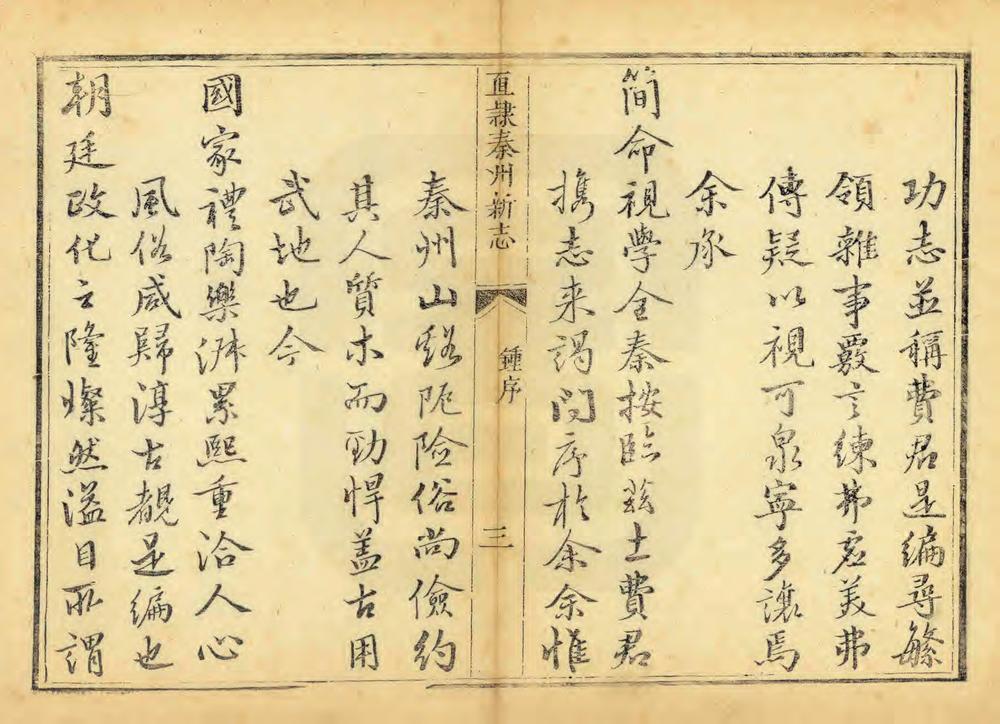 功志並稱費君是編尋繁
領雜事覈言練弗虛美弗
傳疑以視可泉寧多讓焉
余承
簡命視學全秦按臨茲土費君
攜志来謁問序於余余惟
直隸秦州新志
鍾序
三
秦州山谿阨險俗尚儉約
其人質木而勁悍盖古用
武地也今
國家禮陶樂淑累熙重洽人心
風俗咸歸淳古覩是編也
朝廷政化之隆燦然溢目所謂